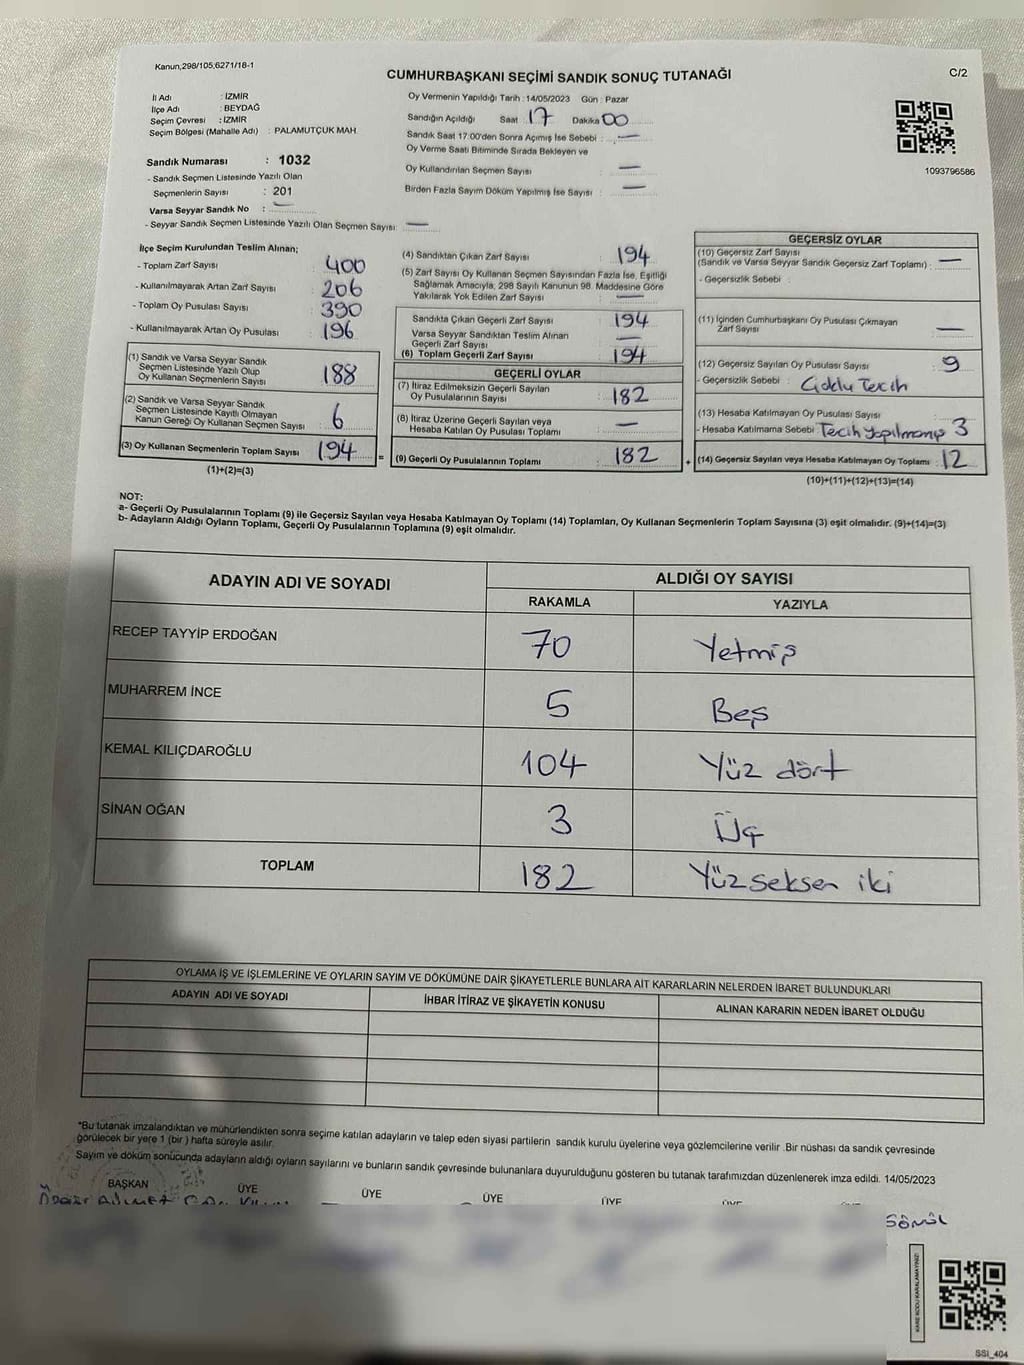 Kanun,298/105,6271/18-1
CUMHURBAŞKANI SEÇİMİ SANDIK SONUÇ TUTANAĞI
C/2
İl Adı : İZMİR
İlçe Adı : BEYDAĞ
Seçim Çevresi : İZMİR
Seçim Bölgesi (Mahalle Adı) : PALAMUTÇUK MAH.
Sandık Numarası : 1032
- Sandık Seçmen Listesinde Yazılı Olan
Seçmenlerin Sayısı : 201
Varsa Seyyar Sandık No : —
- Seyyar Sandık Seçmen Listesinde Yazılı Olan Seçmen Sayısı: —
Oy Vermenin Yapıldığı Tarih : 14/05/2023 Gün : Pazar
Sandığın Açıldığı Saat 17 Dakika 00
Sandık Saat 17:00'den Sonra Açımış İse Sebebi : —
Oy Verme Saati Bitiminde Sırada Bekleyen ve
Oy Kullandırılan Seçmen Sayısı : —
Birden Fazla Sayım Döküm Yapılmış İse Sayısı : —
1093796586
İlçe Seçim Kurulundan Teslim Alınan;
- Toplam Zarf Sayısı : 400
- Kullanılmayarak Artan Zarf Sayısı : 206
- Toplam Oy Pusulası Sayısı : 390
- Kullanılmayarak Artan Oy Pusulası : 196
(1) Sandık ve Varsa Seyyar Sandık
Seçmen Listesinde Yazılı Olup
Oy Kullanan Seçmenlerin Sayısı : 188
(2) Sandık ve Varsa Seyyar Sandık
Seçmen Listesinde Kayıtlı Olmayan
Kanun Gereği Oy Kullanan Seçmen Sayısı : 6
(3) Oy Kullanan Seçmenlerin Toplam Sayısı : 194
(1)+(2)=(3)
(4) Sandıktan Çıkan Zarf Sayısı : 194
(5) Zarf Sayısı Oy Kullanan Seçmen Sayısından Fazla İse, Eşitliği
Sağlamak Amacıyla, 298 Sayılı Kanunun 98. Maddesine Göre
Yakılarak Yok Edilen Zarf Sayısı : —
Sandıkta Çıkan Geçerli Zarf Sayısı : 194
Varsa Seyyar Sandıktan Teslim Alınan
Geçerli Zarf Sayısı : —
(6) Toplam Geçerli Zarf Sayısı : 194
GEÇERLİ OYLAR
(7) İtiraz Edilmeksizin Geçerli Sayılan
Oy Pusulalarının Sayısı : 182
(8) İtiraz Üzerine Geçerli Sayılan veya
Hesaba Katılan Oy Pusulası Toplamı : —
= (9) Geçerli Oy Pusulalarının Toplamı : 182 +
GEÇERSİZ OYLAR
(10) Geçersiz Zarf Sayısı
(Sandık ve Varsa Seyyar Sandık Geçersiz Zarf Toplamı) : —
- Geçersizlik Sebebi :
(11) İçinden Cumhurbaşkanı Oy Pusulası Çıkmayan
Zarf Sayısı : —
(12) Geçersiz Sayılan Oy Pusulası Sayısı : 9
- Geçersizlik Sebebi : Çoklu Tercih
(13) Hesaba Katılmayan Oy Pusulası Sayısı
- Hesaba Katılmama Sebebi : Tecih yapılmamış 3
(14) Geçersiz Sayılan veya Hesaba Katılmayan Oy Toplamı : 12
(10)+(11)+(12)+(13)=(14)
NOT:
a- Geçerli Oy Pusulalarının Toplamı (9) ile Geçersiz Sayılan veya Hesaba Katılmayan Oy Toplamı (14) Toplamları, Oy Kullanan Seçmenlerin Toplam Sayısına (3) eşit olmalıdır. (9)+(14)=(3)
b- Adayların Aldığı Oyların Toplamı, Geçerli Oy Pusulalarının Toplamına (9) eşit olmalıdır.
ADAYIN ADI VE SOYADI ALDIĞI OY SAYISI
RAKAMLA YAZIYLA
RECEP TAYYİP ERDOĞAN 70 Yetmiş
MUHARREM İNCE 5 Beş
KEMAL KILIÇDAROĞLU 104 Yüz dört
SİNAN OĞAN 3 Üç
TOPLAM 182 Yüz seksen iki
OYLAMA İŞ VE İŞLEMLERİNE VE OYLARIN SAYIM VE DÖKÜMÜNE DAİR ŞİKAYETLERLE BUNLARA AİT KARARLARIN NELERDEN İBARET BULUNDUKLARI
ADAYIN ADI VE SOYADI İHBAR İTİRAZ VE ŞİKAYETİN KONUSU ALINAN KARARIN NEDEN İBARET OLDUĞU
*Bu tutanak imzalandıktan ve mühürlendikten sonra seçime katılan adayların ve talep eden siyasi partilerin sandık kurulu üyelerine veya gözlemcilerine verilir .Bir nüshası da sandık çevresinde
görülecek bir yere 1 (bir ) hafta süreyle asılır.
Sayım ve döküm sonucunda adayların aldığı oyların sayılarını ve bunların sandık çevresinde bulunanlara duyurulduğunu gösteren bu tutanak tarafımızdan düzenlenerek imza edildi. 14/05/2023
BAŞKAN ÜYE ÜYE ÜYE ÜYE ÜYE
KARE KODU KARALAMAYINIZ!
SSI_404